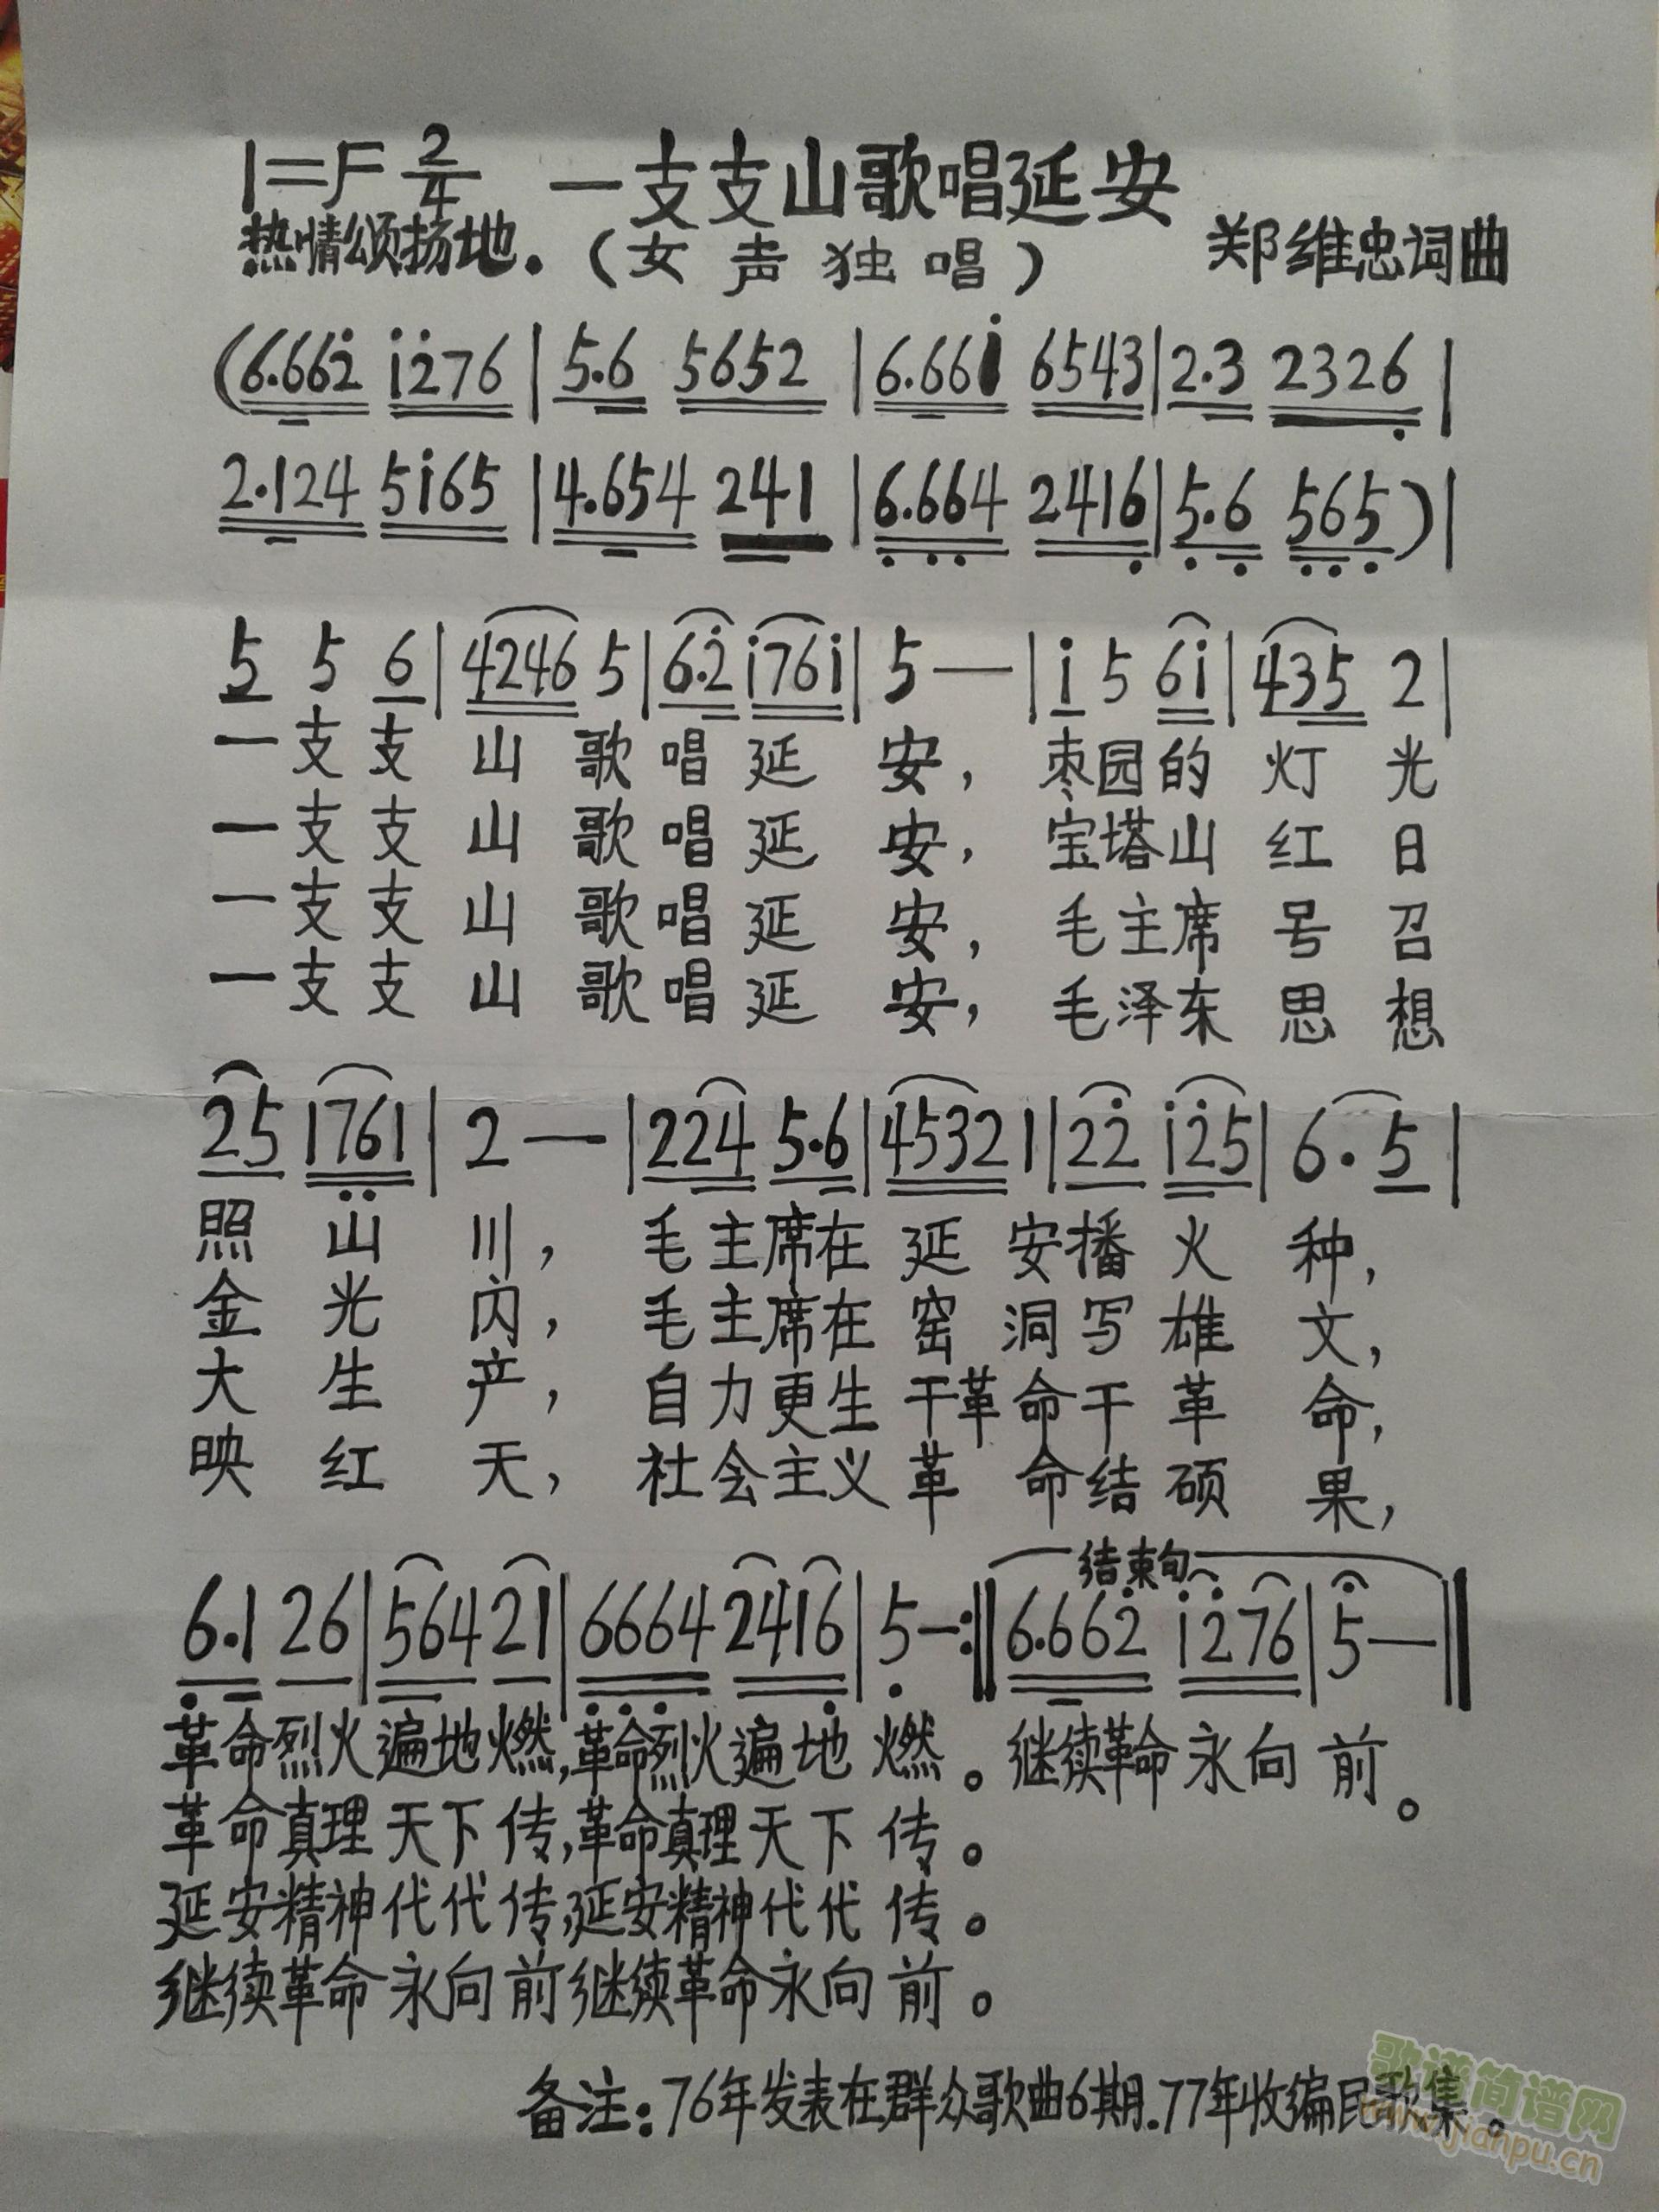 1=F 2/4 一支支山歌唱延安
热情颂扬地.(女声独唱) 郑维忠词曲
(6.662̇ 1̇2̇76|5.6 5652|6.661̇ 6543|2.3 2326̣|
2.124 51̇65|4.654 241|6̣.6̣6̣4 2416̣|5̣.6̣ 5̣6̣5̣)|
5 5 6|4246 5|6.2̇ 1̇761̇|5—|1̇ 5 61̇|435 2|
一支支山歌唱延安,枣园的灯光
一支支山歌唱延安,宝塔山红日
一支支山歌唱延安,毛主席号召
一支支山歌唱延安,毛泽东思想
25 17̣6̣1|2—|224 5.6|4532 1|22̇ 1̇2̇5|6.5|
照山川,毛主席在延安播火种,
金光闪,毛主席在窑洞写雄文,
大生产,自力更生干革命干革命,
映红天,社会主义革命结硕果,
结束句
6̣.1 26|564 21|6̣6̣6̣4 2416̣|5̣—:‖6.662̇ 1̇2̇76|5—‖
革命烈火遍地燃,革命烈火遍地燃。继续革命永向前。
革命真理天下传,革命真理天下传。
延安精神代代传,延安精神代代传。
继续革命永向前继续革命永向前。
备注:76年发表在群众歌曲6期.77年收编民歌集。
歌谱简谱网
www.jianpu.cn